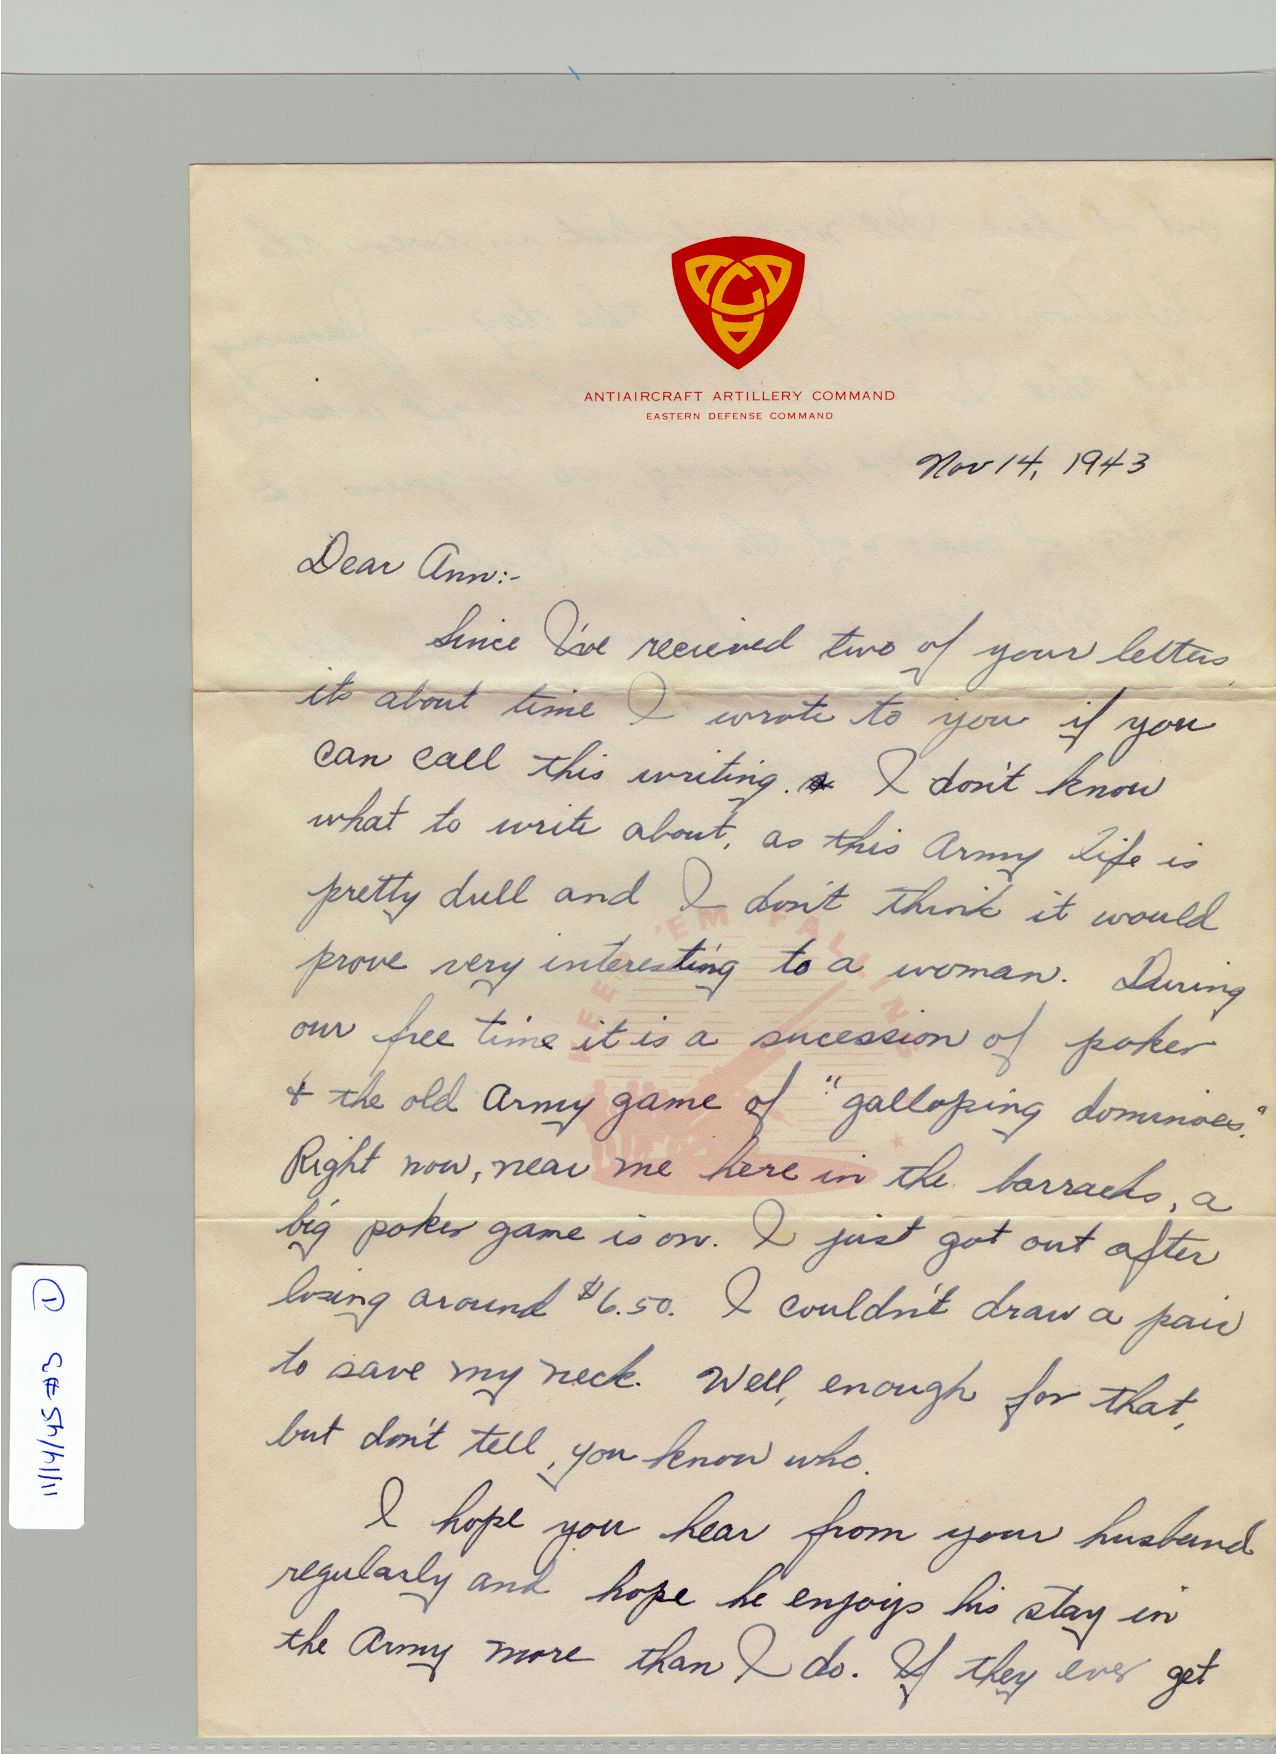 ANTIAIRCRAFT ARTILLERY COMMAND
EASTERN DEFENSE COMMAND
Nov 14, 1943
Dear Ann:-
Since I've recieved two of your letters
its about time I wrote to you if you
can call this writing. I don't know
what to write about, as this Army life is
pretty dull and I don't think it would
prove very interesting to a woman. During
our free time it is a sucession of poker
& the old Army game of "galloping dominoes."
Right now, near me here in the barracks, a
big poker game is on. I just got out after
losing around $6.50. I couldn't draw a pair
to save my neck. Well, enough for that,
but don't tell, you know who.
I hope you hear from your husband
regularly and hope he enjoys his stay in
the Army more than I do. If they ever get
KEEP 'EM FALLING
11/14/45 #3 1